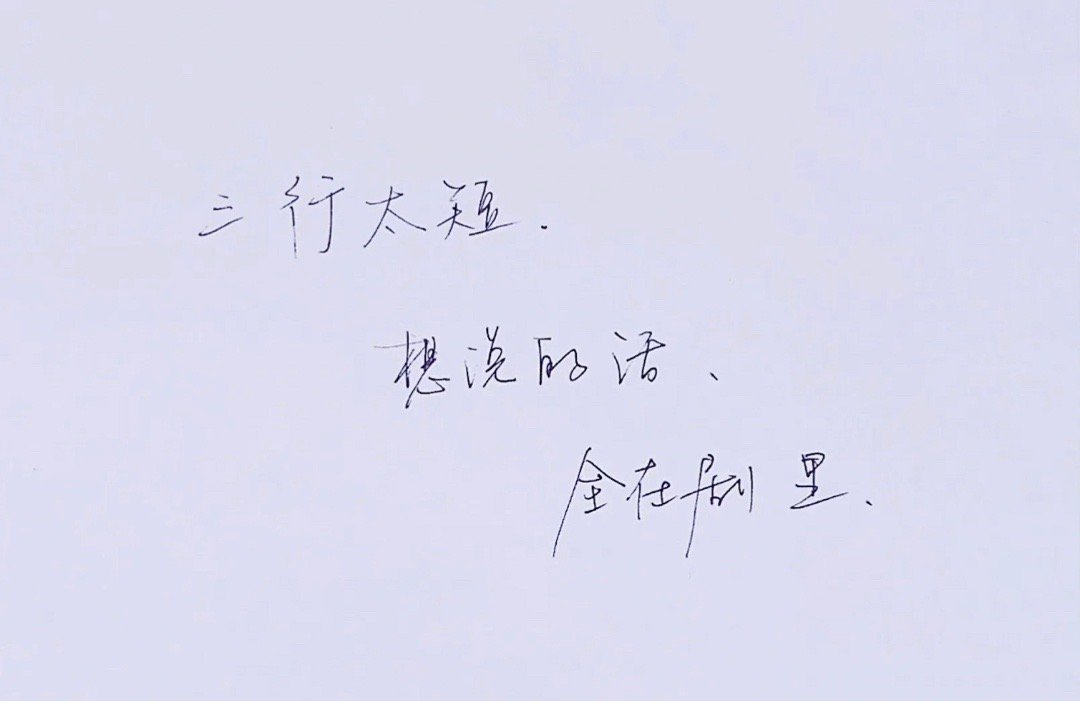 三行太短.
想说的话、
全在剧里、